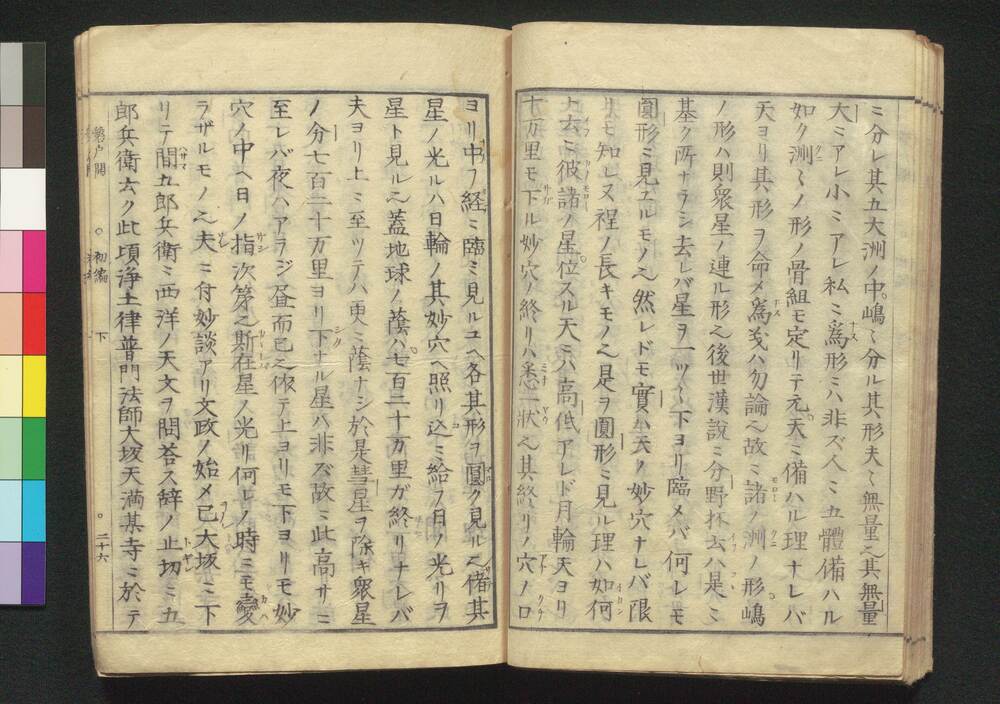 ミ分レ其五大洲ノ中嶋〻分ル其形夫〻無量之其無量
大ミアレ小ミアレ私ミ為形ミハ非ズ人ミ五體備ハル
如ク洲〻ノ形ノ骨組モ定リテ元天ミ備ハル理ナレバ
天ヨリ其形ヲ命メ為戔ハ勿論之故ミ諸ノ洲ノ形嶋
ノ形ハ則衆星ノ連ル形之後世漢説ミ分野抔云ハ是ミ
基ク所ナラシ去レバ星ヲ一ツ〻下ヨリ臨メバ何レモ
圓形ミ見エルモノ之然レドモ實ハ天ノ妙穴ナレバ限
リモ知レヌ程ノ長キモノ之是ヲ圓形ミ見ル理ハ如何
ト云ミ彼諸ノ星位スル天ミハ高低アレド月輪天ヨリ
十万里モ下ル妙穴ノ終リハ悉一狀之其終リノ穴ノ口
ヨリ中フ経ミ臨ミ見ルユヘ各其形ヲ圓ク見ル之偖其
星ノ光ルハ日輪ノ其妙穴ヘ照リ込ミ給フ日ノ光リヲ
星ト見ル之蓋地球ノ蔭ハ七百二十万里ガ終リナレバ
夫ヨリ上ミ至ツテハ更ミ蔭ナシ於是彗星ヲ除キ衆星
ノ分七百二十万里ヨリ下ナル星ハ非ズ故ミ此高サミ
至レバ夜ハアラジ昼而已之依テ上ヨリモ下ヨリモ妙
穴ノ中ヘ日ノ指次第之斯在星ノ光リ何レノ時ミモ變
ラザルモノ之夫ミ付妙談アリ文政ノ始メ己大坂ミ下
リテ間五郎兵衛ミ西洋ノ天文ヲ問荅ス辞ノ止切ミ五
郎兵衛云ク此頃浄土律普門法師大坂天満某寺ミ於テ
初編
下
二十六